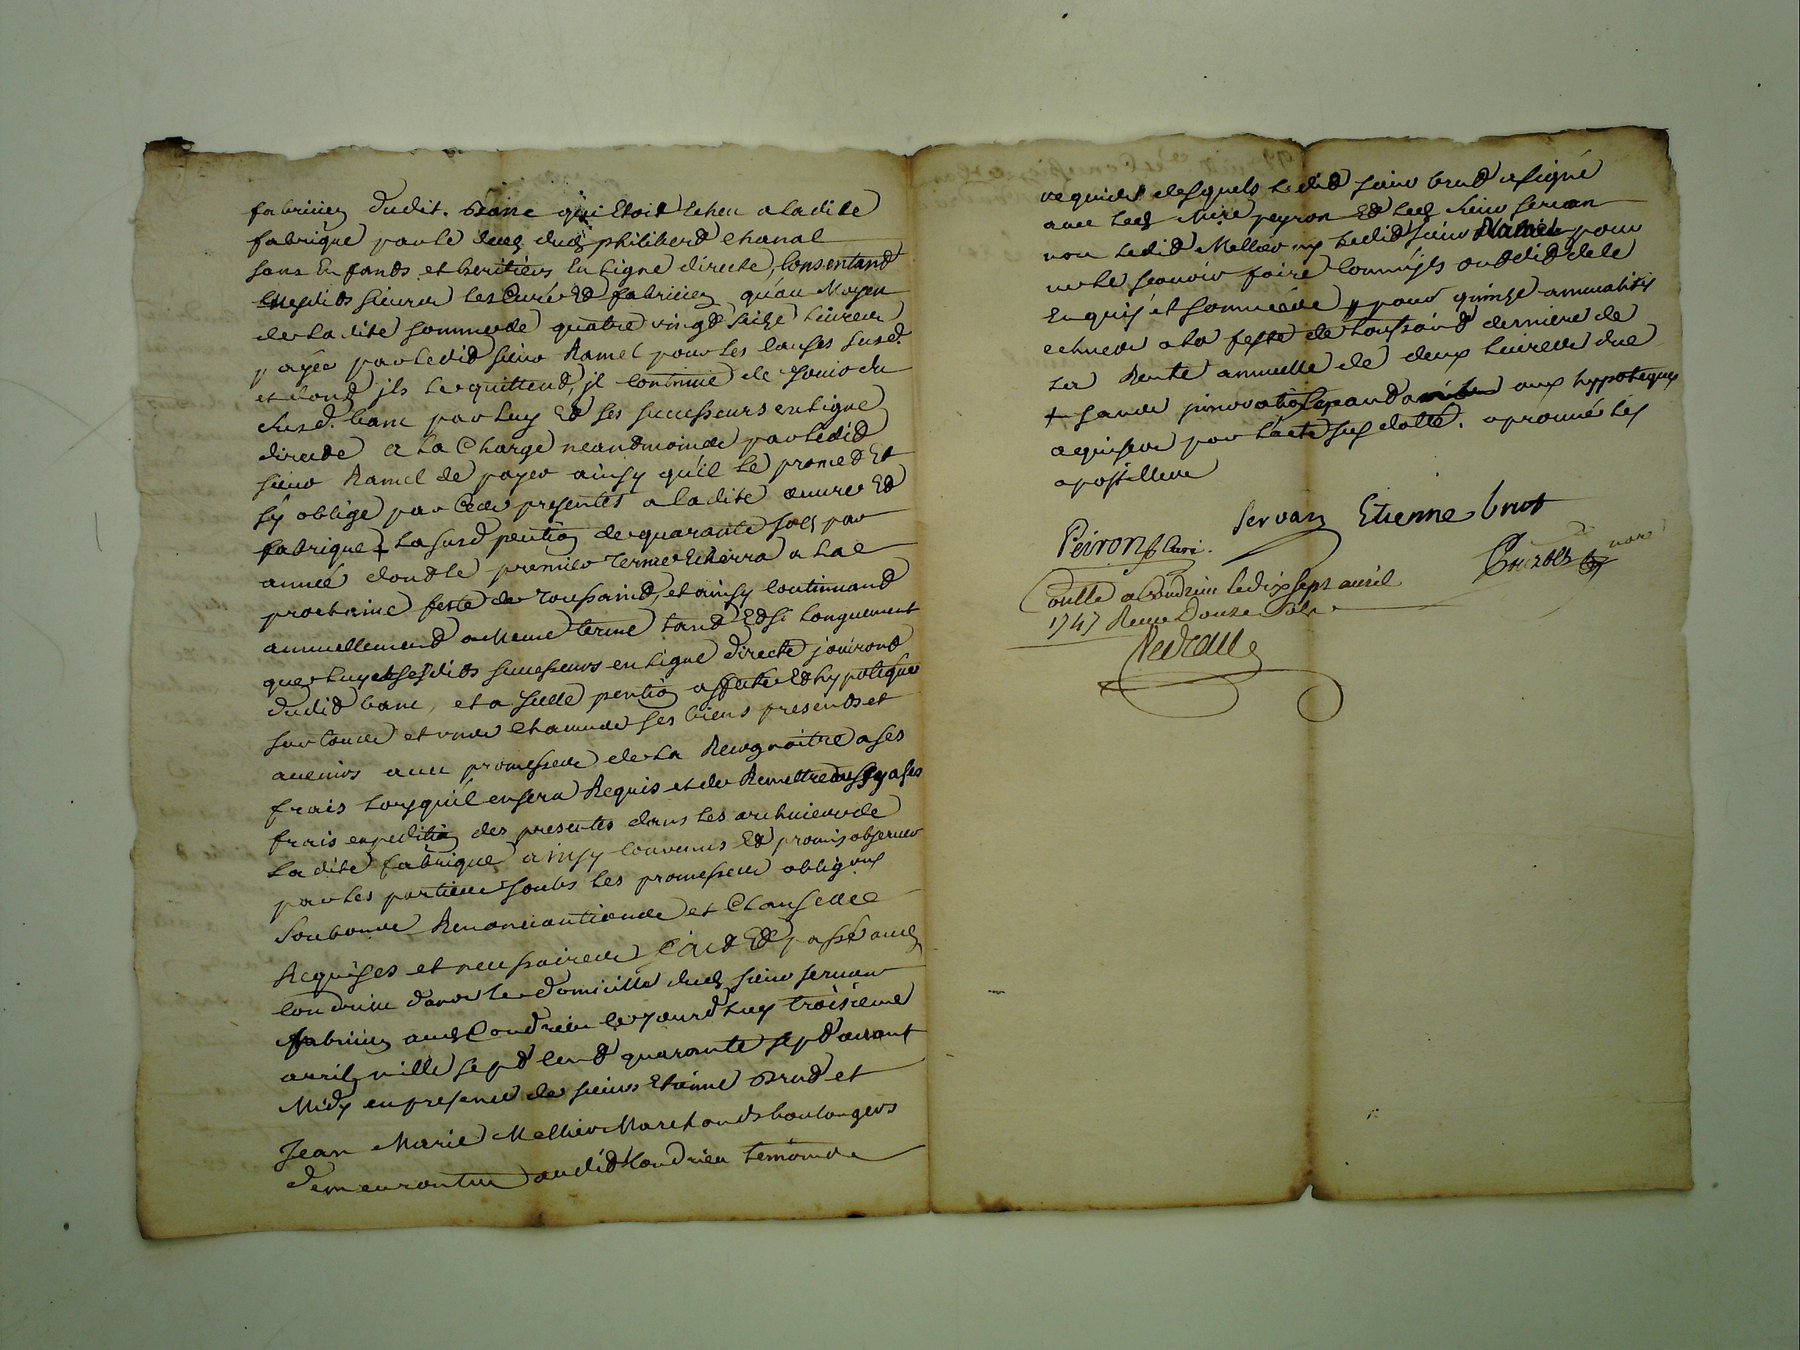 fabricien dudit. Banc qui Etoit Echeu a ladite
fabrique par le deces dud philiberd Chanal
sans Enfands et heritiers En ligne directe, Consentand
lesdits sieurs les Curé Ed fabricien qu'au Moyen
de la dite somme de quatre vingd seize Livres
payée par ledid sieur Ramel pour les causes susd.
et dond ils le quittend, jl Continue de jouir du
susd. banc par luy Ed ses successeurs en ligne
directe A la Charge neandmoins par ledid
sieur Ramel de payer ainsy qu'il le promed Et
sy oblige par Ces presentes a ladite œuvre Ed
fabrique + la susd pention de quarante sols par
année dond le premier Terme Echerra a la
prochaine feste de Toussaind, et ainsy Continuand
annuellemend a Meme terme tand Ed si longuement
que luy et sesdits successeurs en ligne directe jouirond
dudid banc, et a jcelle pention affecte Ed hypoteque
sur tous et uns Chacuns ses biens presends et
avenirs avec promesse de la Recognoitre a ses
frais lorsqu'il en sera Requis et de Remettre aussy a ses
frais expedition des presentes dans les archives de
la dite fabrique ainsy Convenus Ed promis observer
par les parties soubs les promesses oblig ons
soubons Renonciations et Clauses
Requises et necessaires faid Ed passé aud
Condrieu dans le domicille dud sieur servan
fabricien aud Condrieu le jourd'huy troisieme
avril mille sepd cend quarante sepd avant
Midy en presence de sieurs Etienne Brud et
Jean Marie Mellier Marchands boulangers
demeurants audid Condrieu temoins
requids desquels ledid sieur brud a signé
avec led Mire peyron Ed led sieur servan
non ledid Mellier ny ledid sieur Ramel pour
ne le scavoir faire Comme jls ond did de ce
Enquis et sommés # pour quinze annualités
echues a la feste de toussaind derniere de
la Rente annuelle de deux livres due
+ sans jnnovation aux hypoteques
aquises par l'acte sus datté. aprouvé les
apostilles
servan Etienne brut
Peiron Curé.
nore
Conllé a Condrieu le dix sept avril
1747 Reçu Douze sols